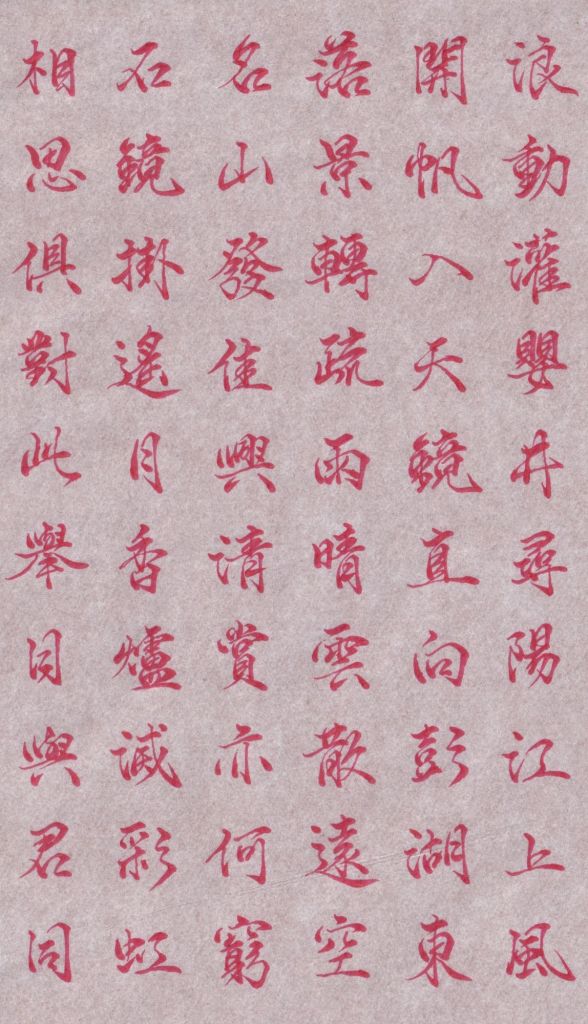 浪動灌嬰井尋陽江上風
開帆入天鏡直向彭湖東
落景轉疏雨晴雲散遠空
名山發佳興清賞亦何窮
石鏡掛遙月香爐滅彩虹
相思俱對此舉目與君同